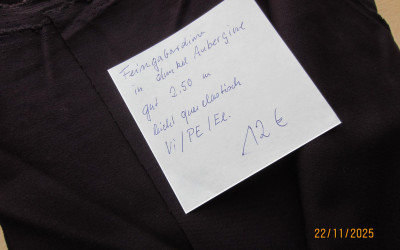 Feingabardine
in dunkel Aubergine
gut 2.50 m
leicht querelastisch
Vi/PE/El.
12 €
22/11/2025